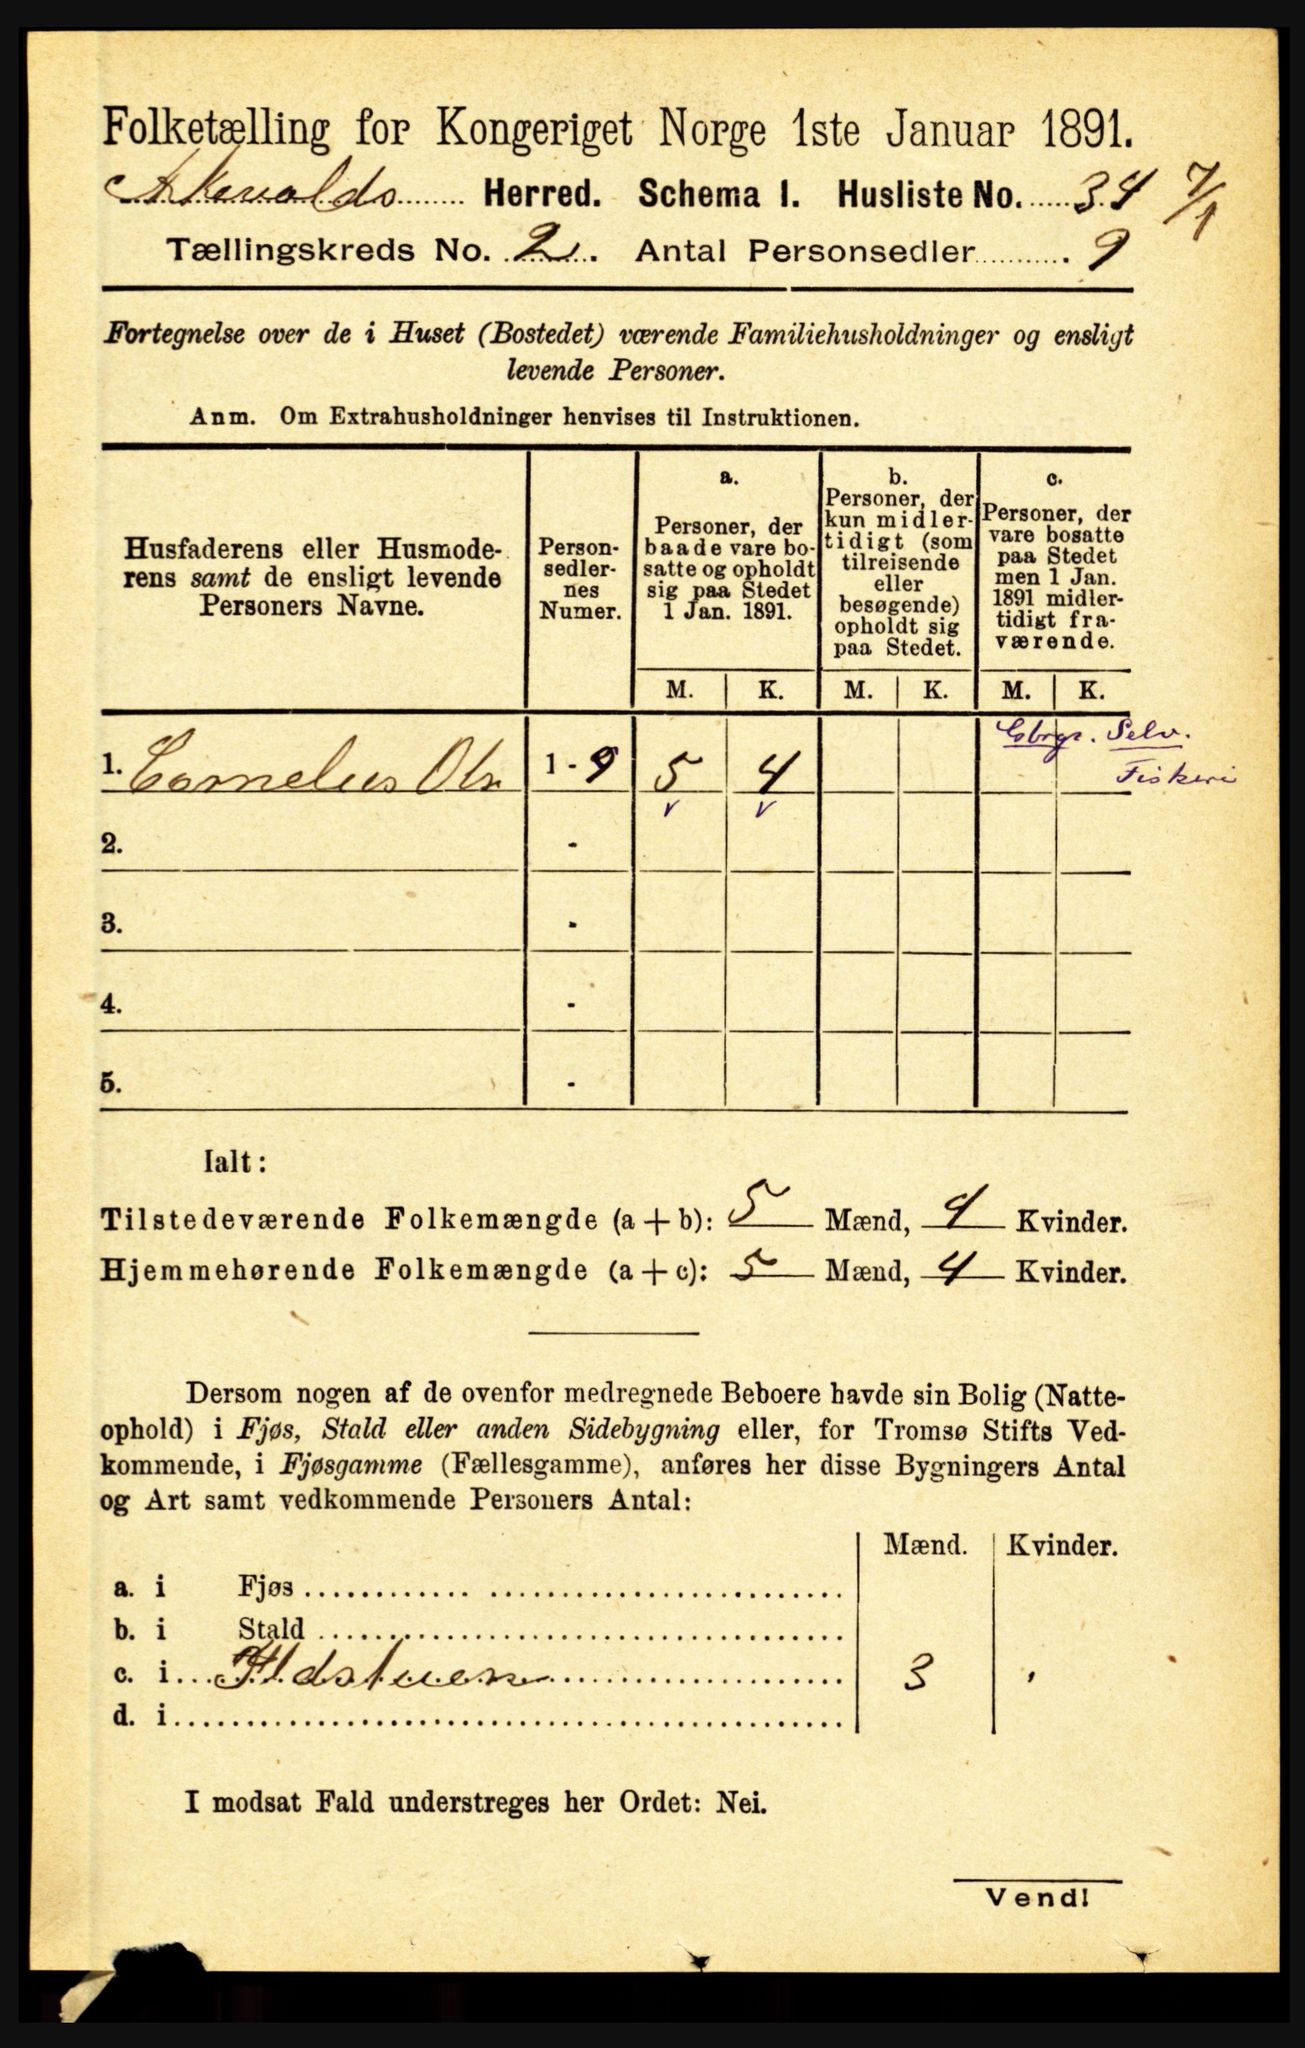 Folketælling for Kongeriget Norge 1ste Januar 1891.
Askevolds Herred. Schema 1. Husliste No. 34 7/1
Tællingskreds No. 2. Antal Personsedler 9
Fortegnelse over de i Huset (Bostedet) værende Familiehusholdninger og ensligt
levende Personer.
Anm. Om Extrahusholdninger henvises til Instruktionen.
Husfaderens eller Husmode-
rens samt de ensligt levende
Personers Navne.
Person-
sedler-
nes
Numer.
a.
Personer, der
baade vare bo-
satte og opholdt
sig paa Stedet
1 Jan. 1891.
b.
Personer, der
kun midler-
tidigt (som
tilreisende
eller
besøgende)
opholdt sig
paa Stedet.
c.
Personer, der
vare bosatte
paa Stedet
men 1 Jan.
1891 midler-
tidigt fra-
værende.
M. K. M. K. M. K.
Gbrgr. Selv.
Fiskeri
1. Cornelius Ols 1 - 9 5 4
v v
2. -
3. -
4. -
5. -
Ialt:
Tilstedeværende Folkemængde (a + b): 5 Mænd, 4 Kvinder.
Hjemmehørende Folkemængde (a + c): 5 Mænd, 4 Kvinder.
Dersom nogen af de ovenfor medregnede Beboere havde sin Bolig (Natte-
ophold) i Fjøs, Stald eller anden Sidebygning eller, for Tromsø Stifts Ved-
kommende, i Fjøsgamme (Fællesgamme), anføres her disse Bygningers Antal
og Art samt vedkommende Personers Antal:
Mænd. Kvinder.
a. i Fjøs
b. i Stald
c. i Ildstuen 3 "
d. i
I modsat Fald understreges her Ordet: Nei.
Vend!